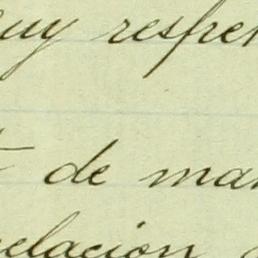 uy respe
de ma
elación